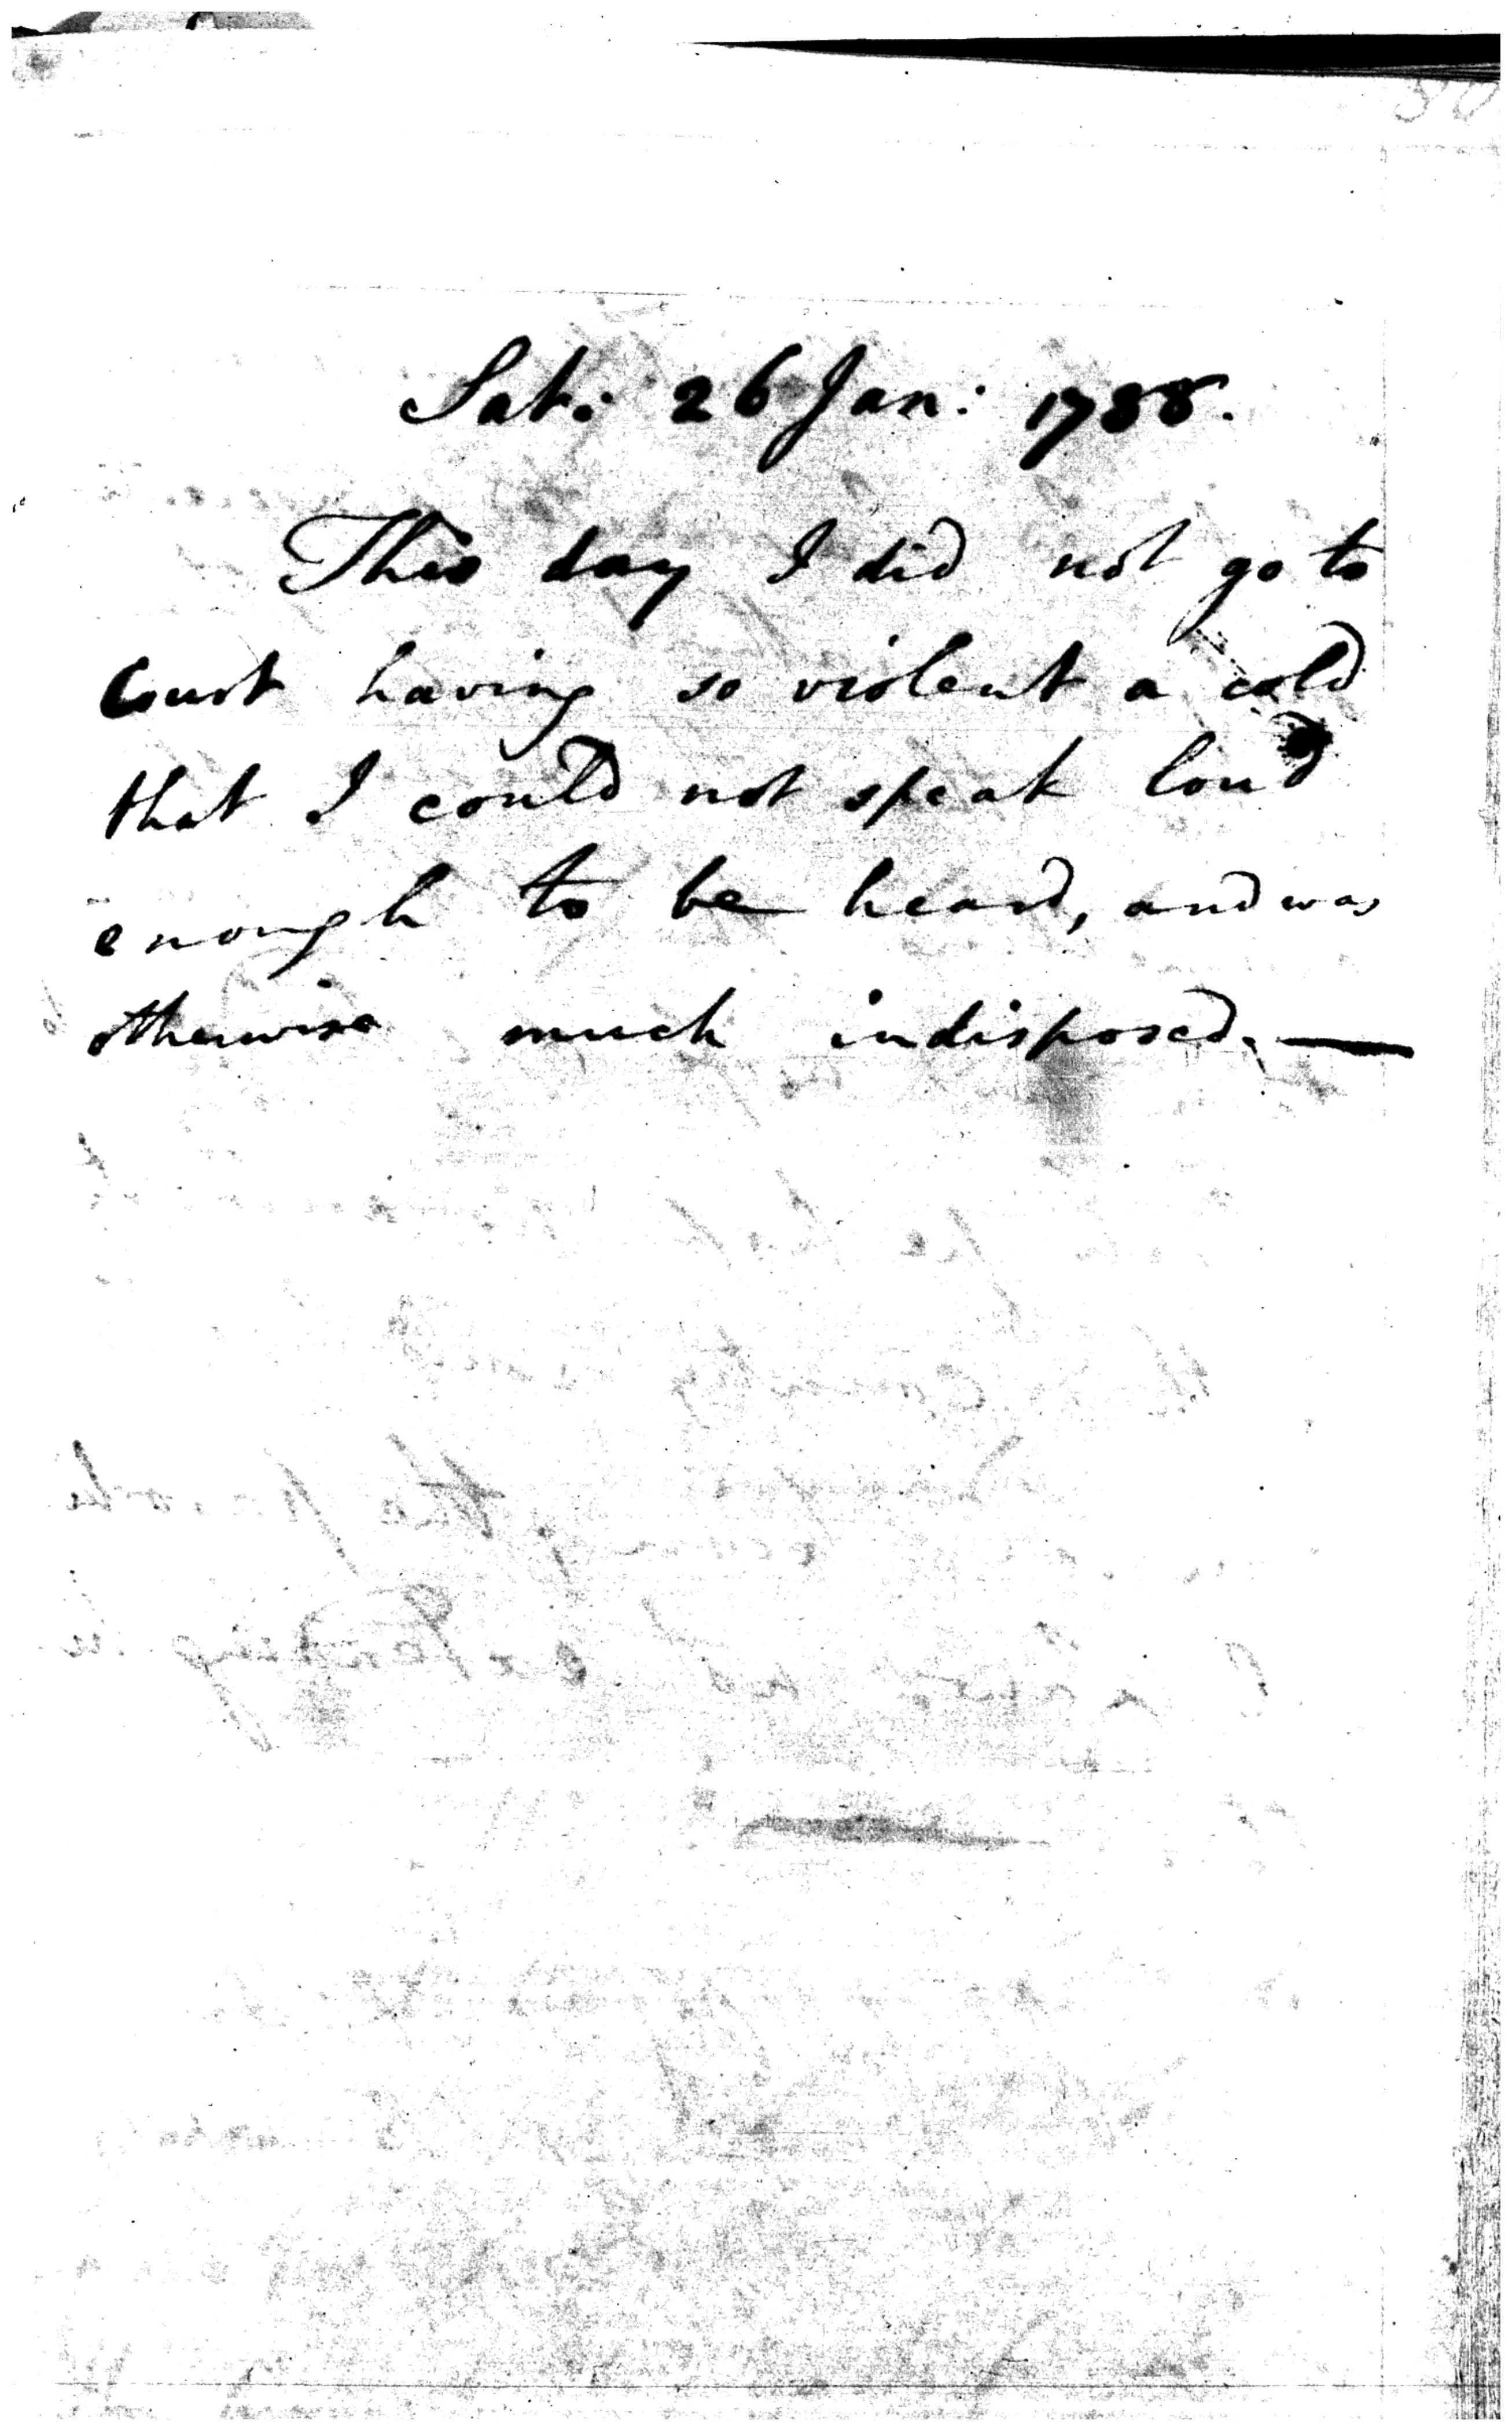 Sat: 26 Jan: 1788.
This day I did not go to
Court having so violent a cold
that I could not speak loud
enough to be heard, and was
otherwise much indisposed. —